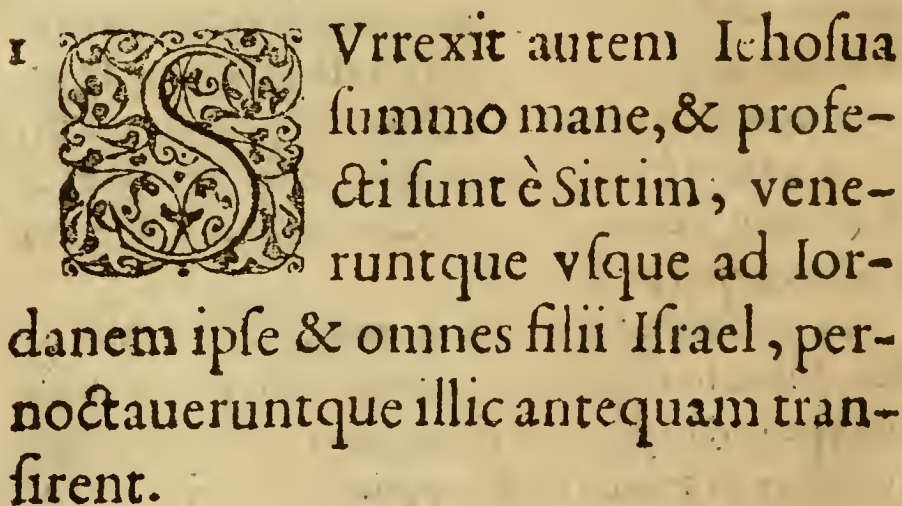 1 SVrrexit autem Iehoſua
ſummo mane, & profe-
cti ſunt è Sittim, vene-
runtque vſque ad Ior-
danem ipſe & omnes filii Iſrael, per-
noctaueruntque illic antequam tran-
ſirent.